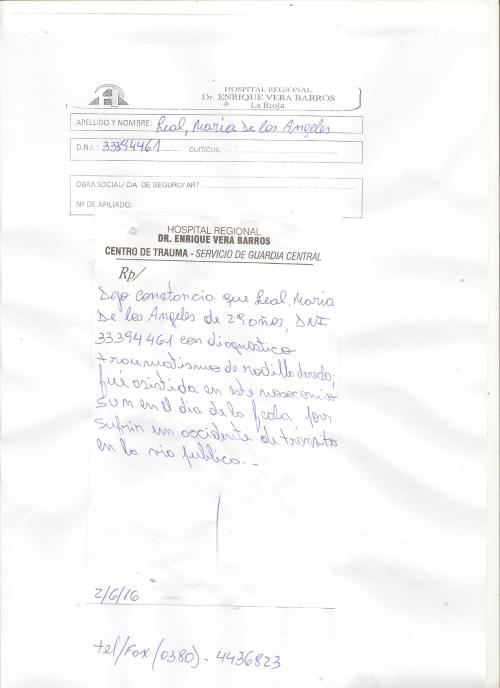 HOSPITAL REGIONAL
Dr. ENRIQUE VERA BARROS
La Rioja
APELLIDO Y NOMBRE: Leal, Maria De los Angeles
D.N.I.: 33394461 CUIT/CUIL:
OBRA SOCIAL/ CIA. DE SEGURO/ ART
Nº DE AFILIADO:
HOSPITAL REGIONAL
DR. ENRIQUE VERA BARROS
CENTRO DE TRAUMA - SERVICIO DE GUARDIA CENTRAL
Rp/
Dejo constancia que Leal, Maria
De los Angeles de 29 años, DNI
33394461 con diagnostico
traumatismo de rodilla derecha;
fué asistida en este nosocomio
en el dia de la fecha por
sufrir un accidente de tránsito
en la via publica.-
2/6/16
tel/Fax (0380) - 4436823